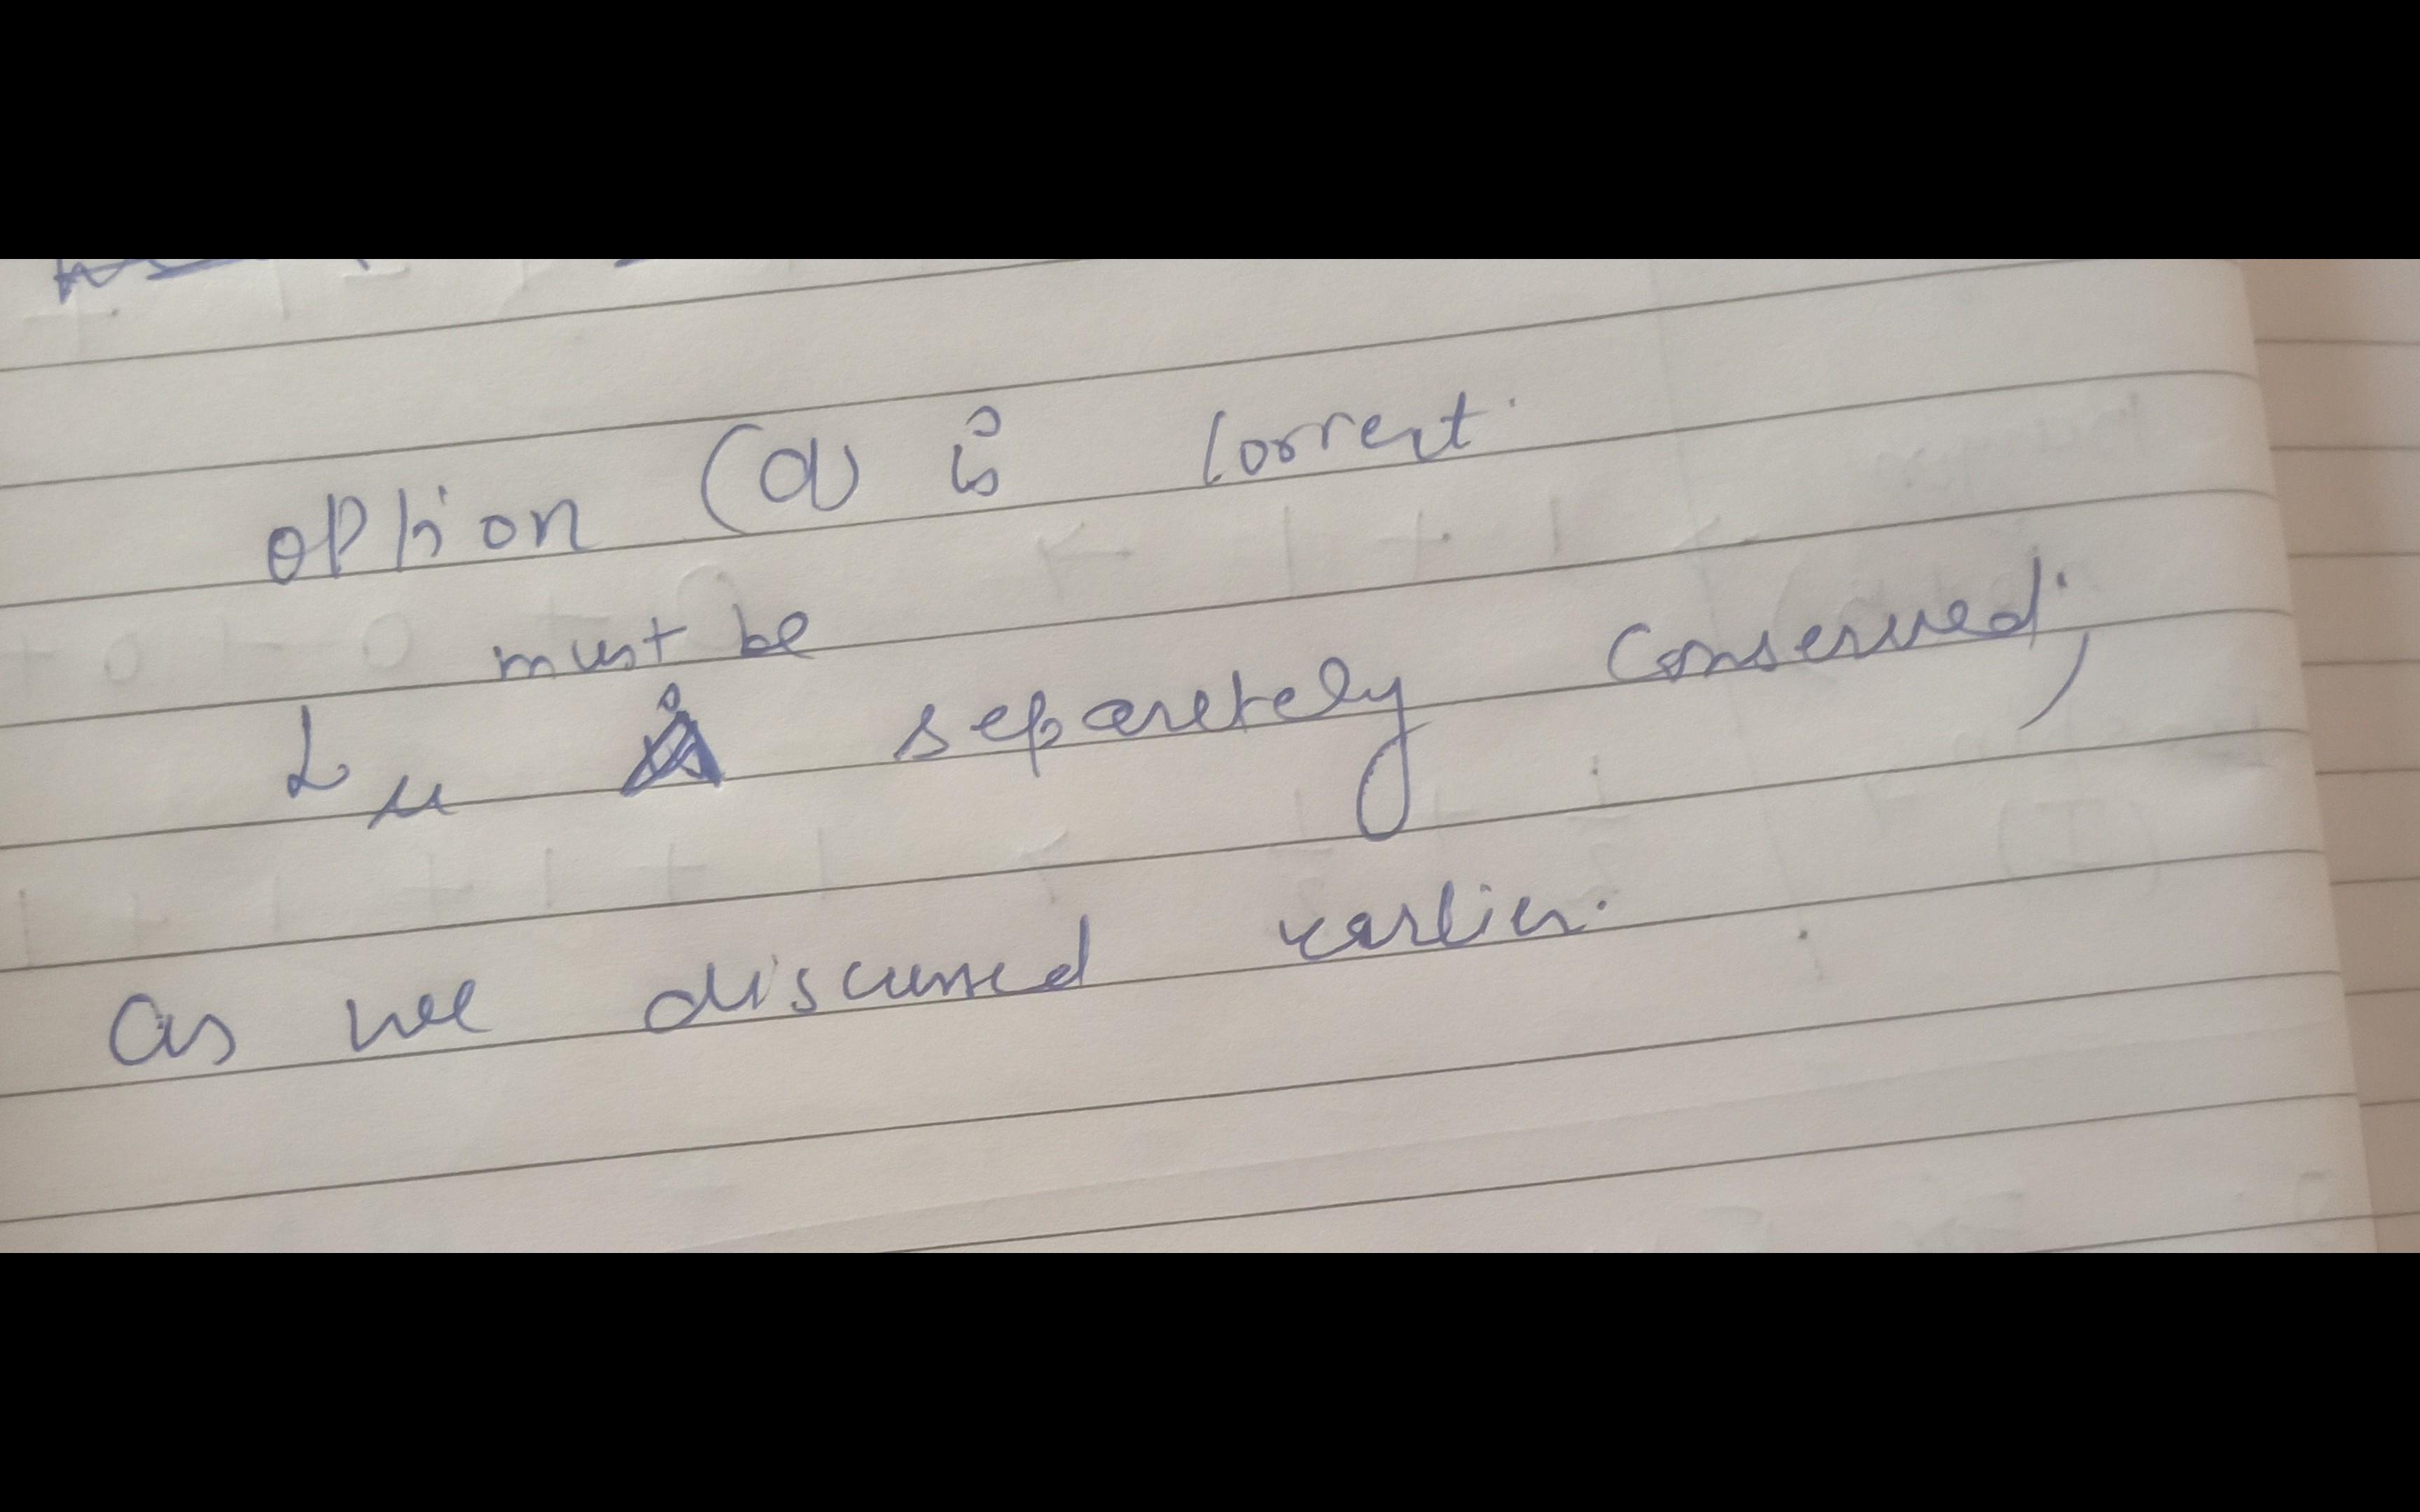 option (a) is correct.
must be
Lμ separetely conserved,
as we discussed earlier.